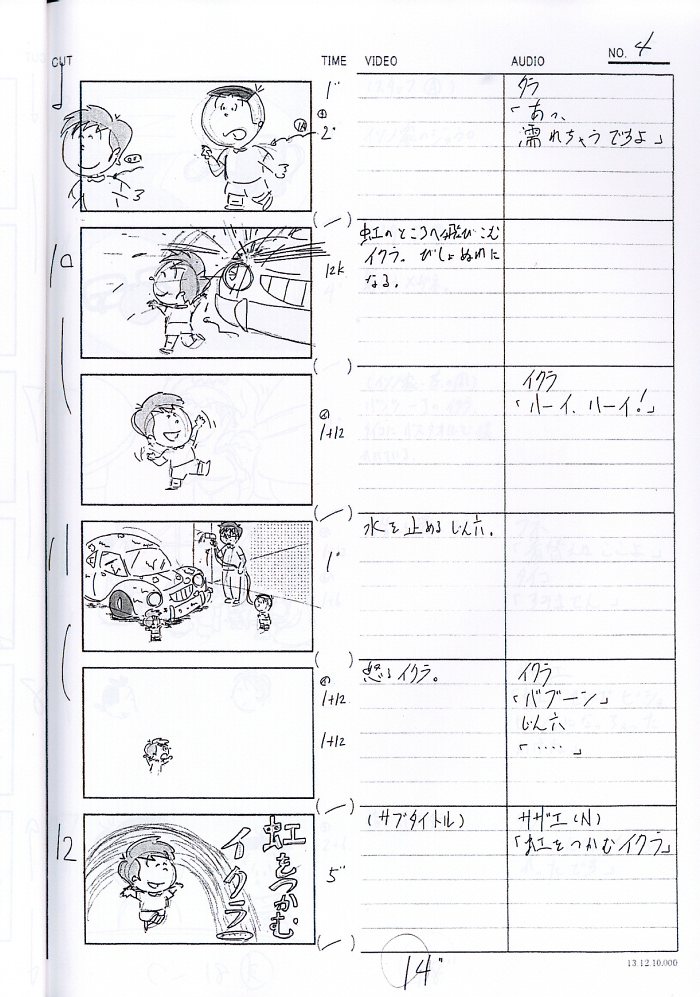 CUT TIME VIDEO AUDIO NO. 4
9
1"
2"
タラ
「あっ、
濡れちゃうですよ」
10
12k
虹のところへ飛びこむ
イクラ。びしょぬれに
なる。
1+12
イクラ
「ハーイ、ハーイ!」
11
1"
水を止めるじん六。
1+12
1+12
怒るイクラ。
イクラ
「バブーン」
じん六
「‥‥」
12
虹をつかむ
イクラ
5"
(サブタイトル)
サザエ(N)
「虹をつかむイクラ」
14"
13.12.10.000